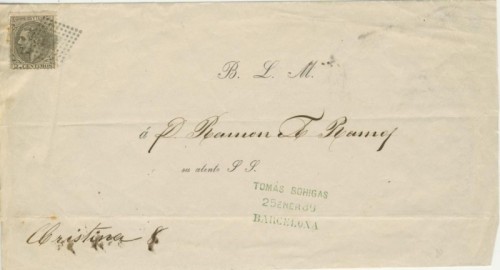 B. L. M.
á D. Ramon F. Ramos
su atento S. S.
TOMÁS BOHIGAS
25 ENER 89
BARCELONA
Cristina 8